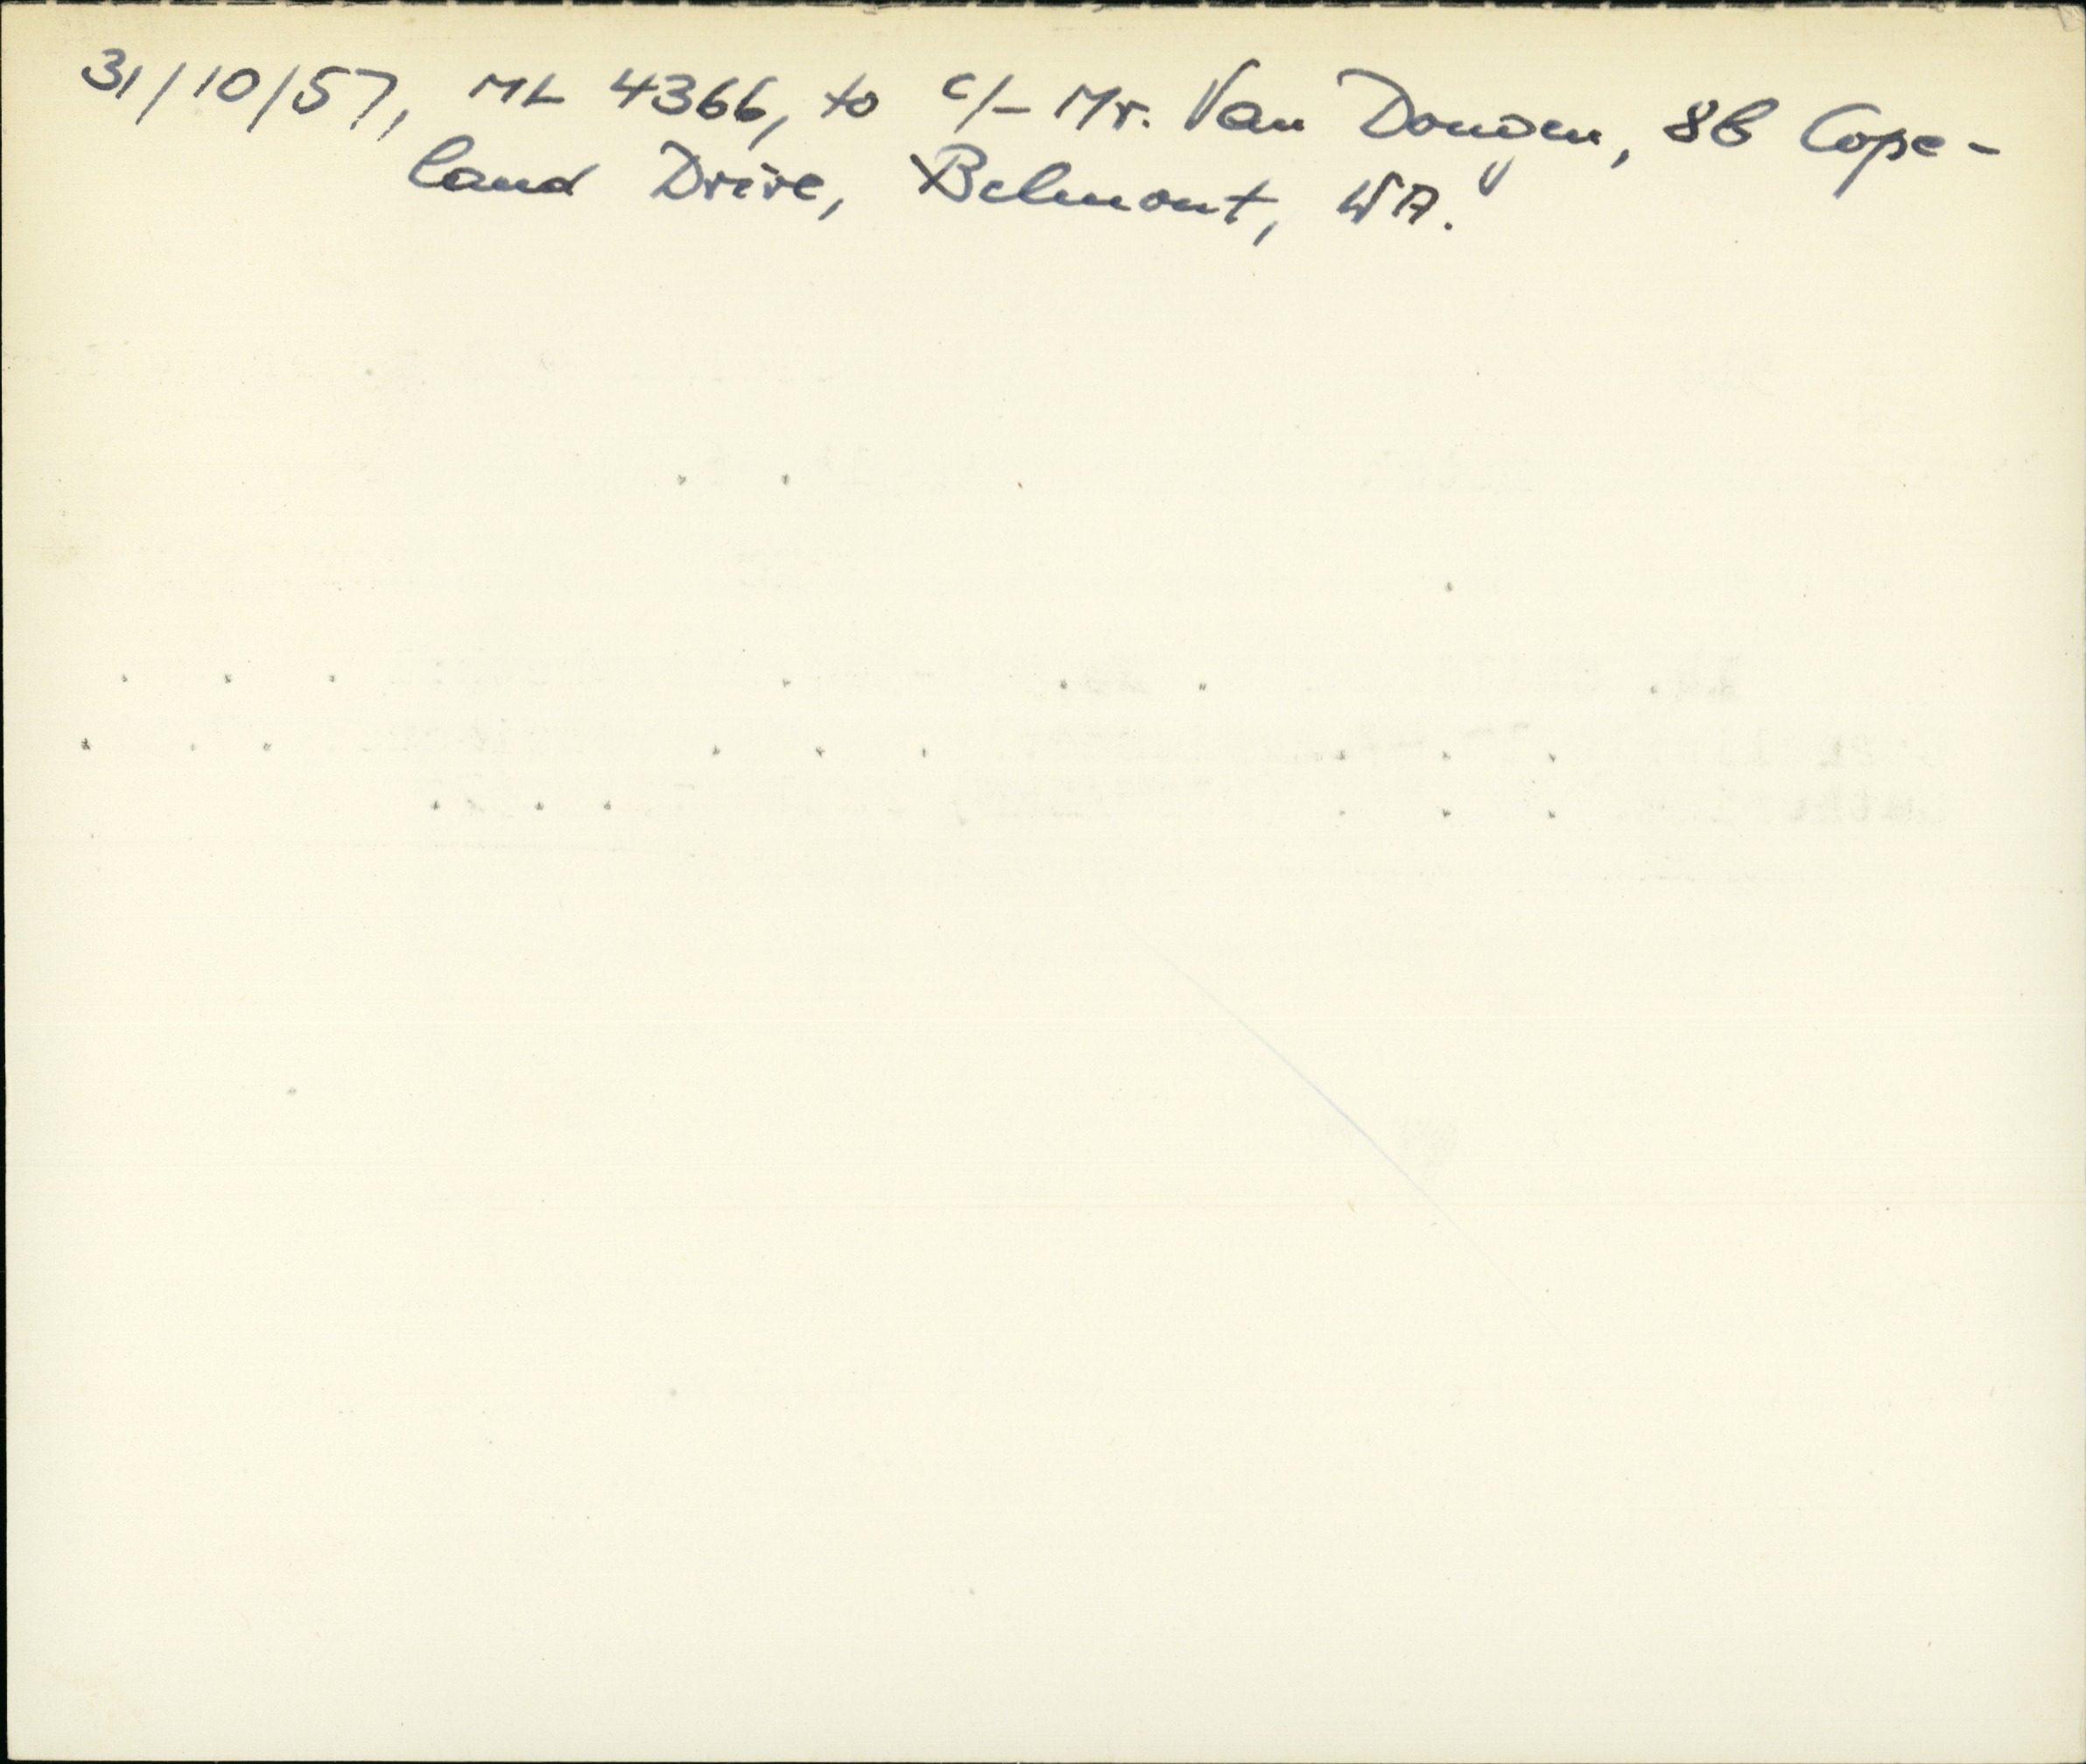 31/10/57, ML 4366, to c/- Mr. Van Dongen, 86 Cope-
land Drive, Belmont, WA.